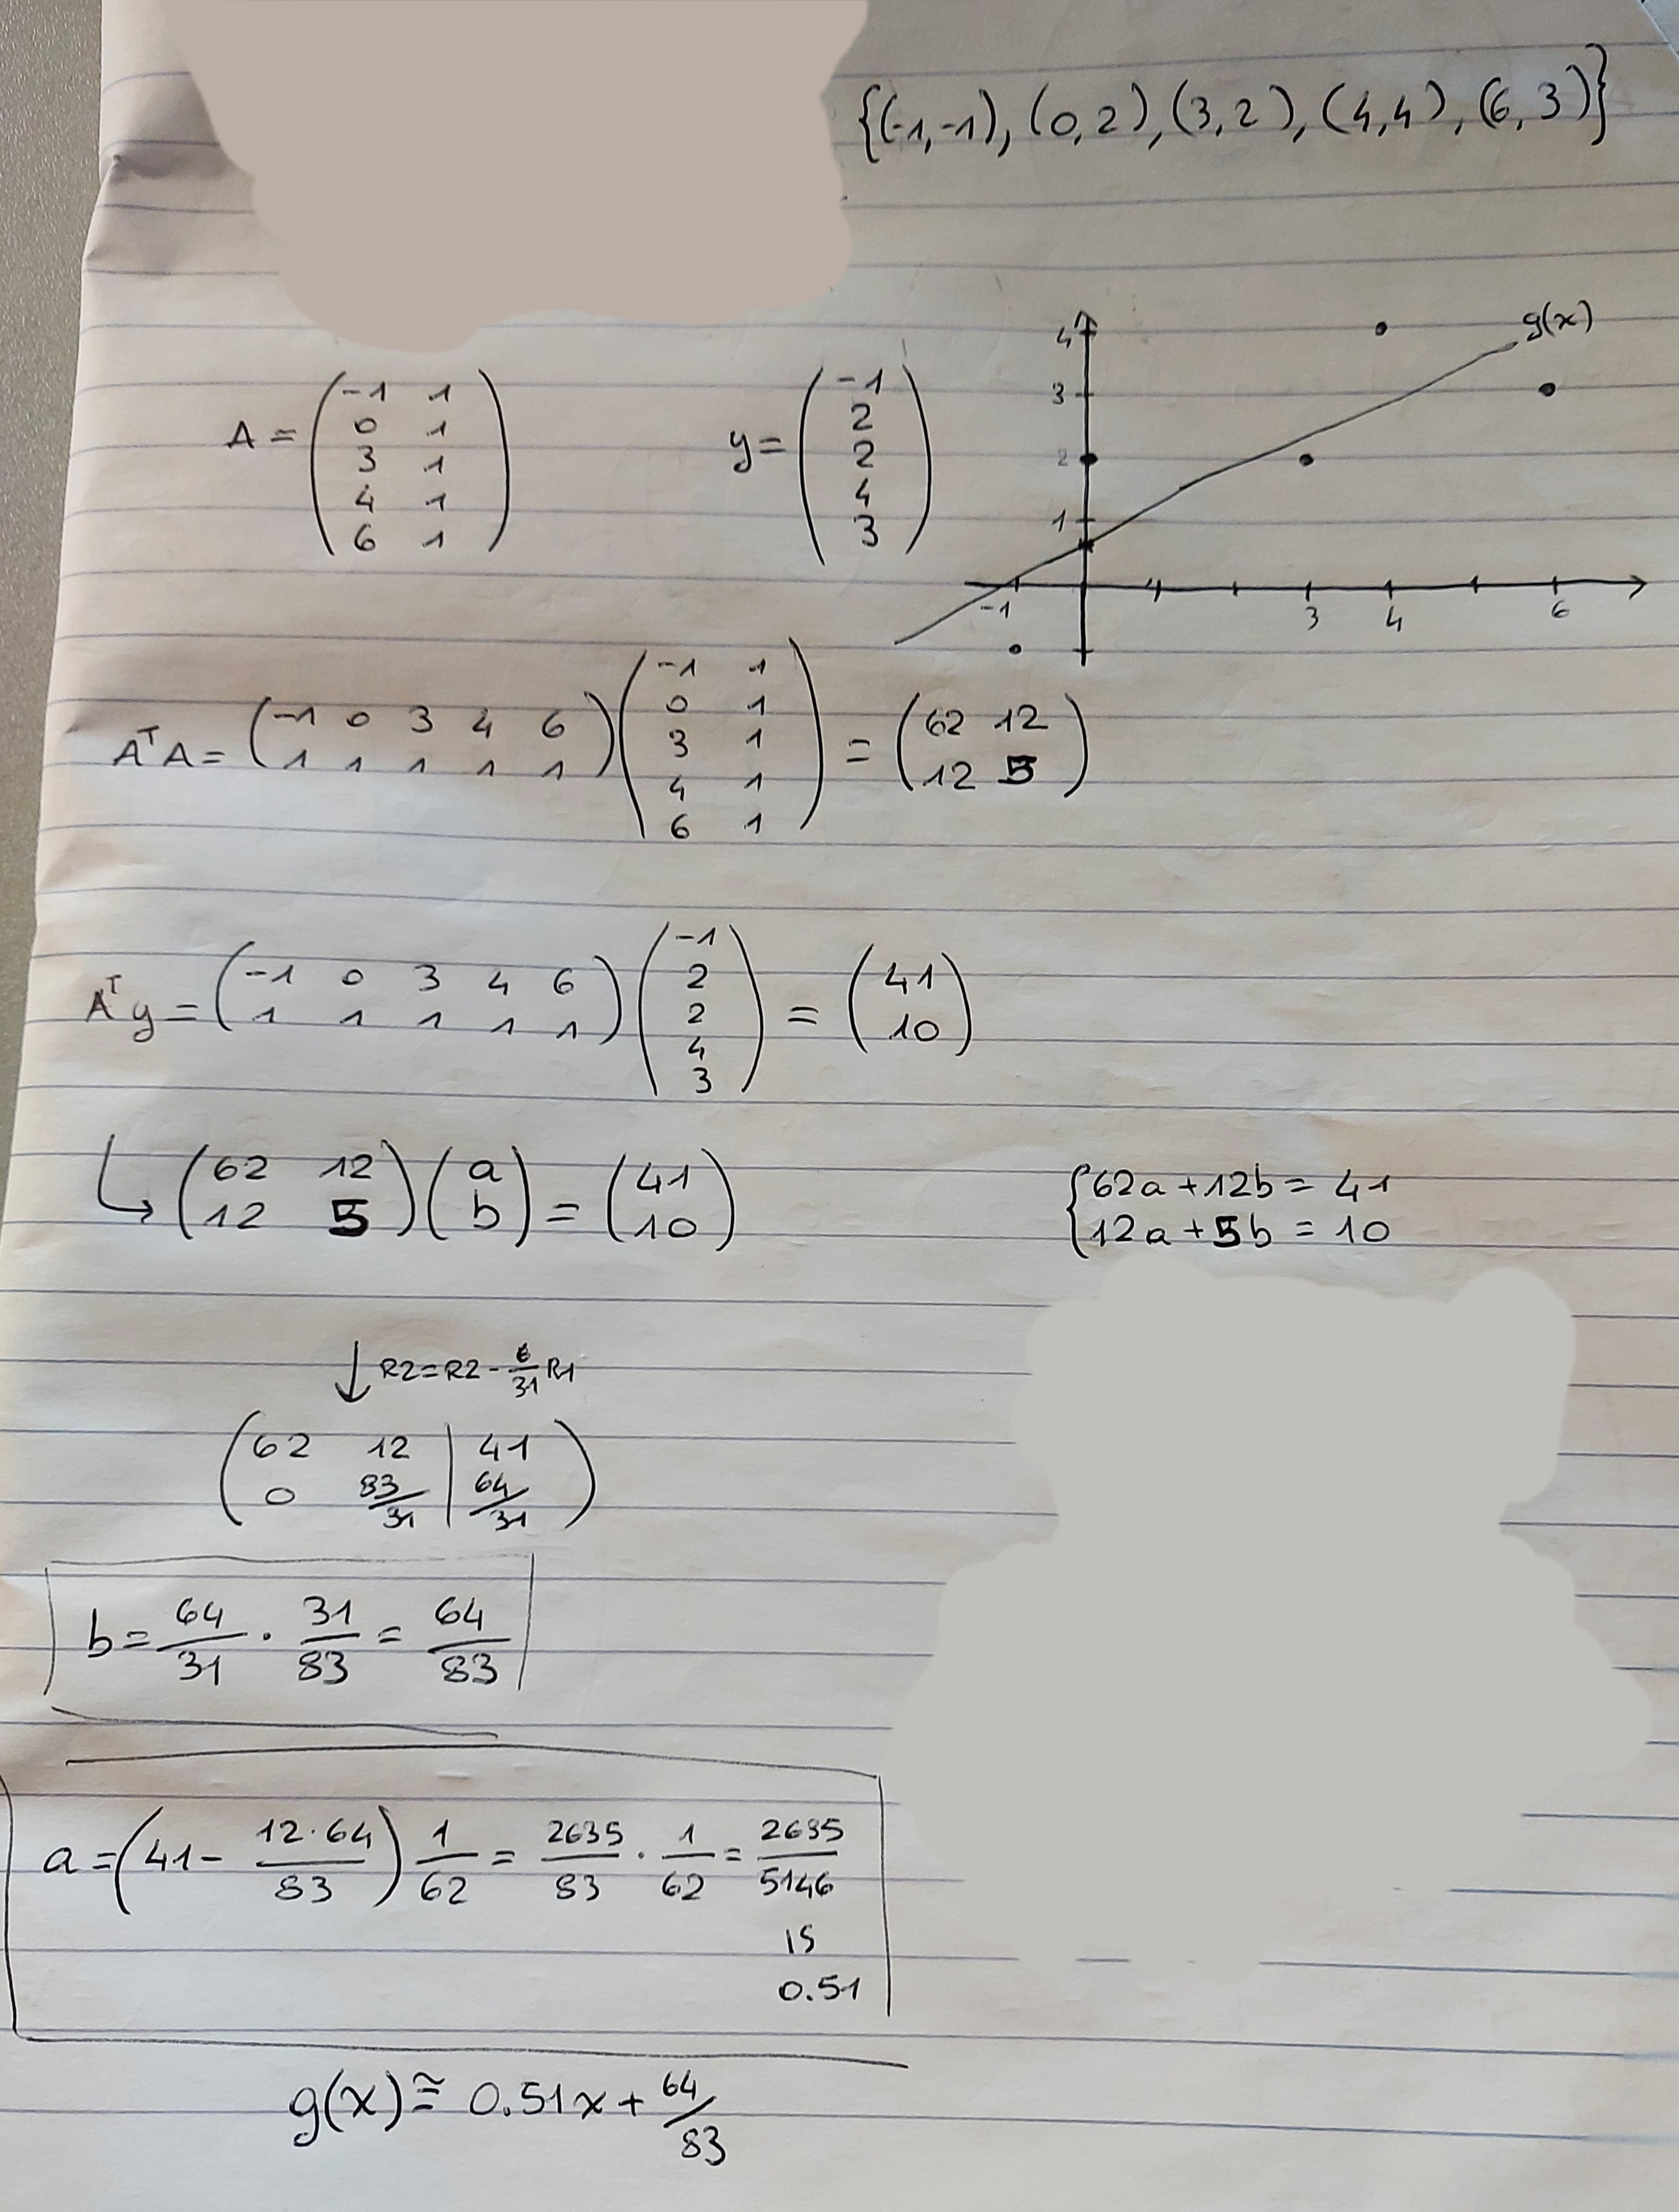 {(-1,-1), (0,2), (3,2), (4,4), (6,3)}
A = (-1 1
0 1
3 1
4 1
6 1)
y = (-1
2
2
4
3)
g(x)
4
3
2
1
-1 1 3 4 6
AᵀA = (-1 0 3 4 6
1 1 1 1 1) (-1 1
0 1
3 1
4 1
6 1) = (62 12
12 5)
Aᵀy = (-1 0 3 4 6
1 1 1 1 1) (-1
2
2
4
3) = (41
10)
↳ (62 12
12 5) (a
b) = (41
10)
{62a + 12b = 41
12a + 5b = 10
↓ R2 = R2 - 6/31 R1
(62 12 | 41
0 83/31 | 64/31)
b = 64/31 · 31/83 = 64/83
a = (41 - 12·64/83) 1/62 = 2635/83 · 1/62 = 2635/5146
IS
0.51
g(x) ≅ 0.51x + 64/83